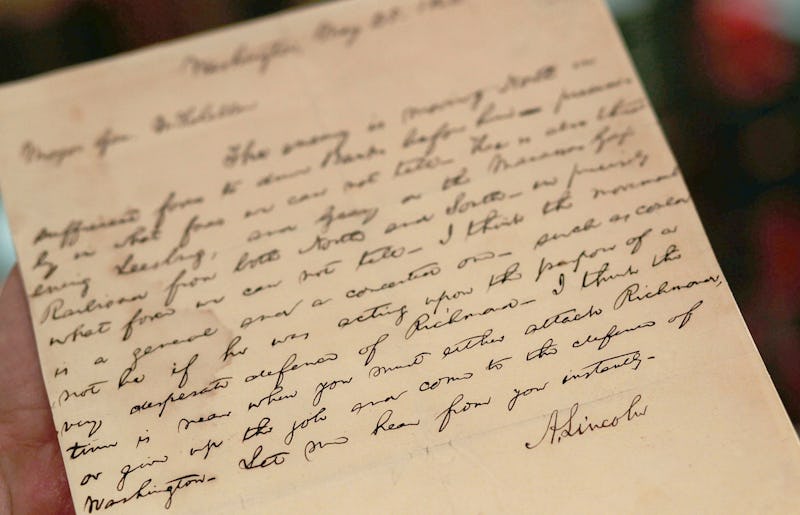 Washington, May 25. 
Major Gen. McClellan
The enemy is moving North in
sufficient force to drive Banks before him— precise-
ly in what force we can not tell— He is also threat-
ening Leesburg, and Geary on the Manassas Gap
Railroad from both North and South— in precisely
what force we can not tell— I think the movement
is a general and a concerted one— such as could
not be if he was acting upon the purpose of a
very desperate defence of Richmond— I think the
time is near when you must either attack Richmond,
or give up the job and come to the defence of
Washington— Let me hear from you instantly—
A. Lincoln